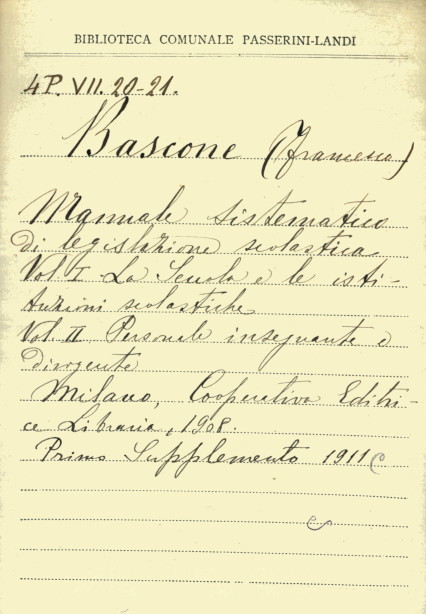 BIBLIOTECA COMUNALE PASSERINI-LANDI
4P. VII. 20-21.
Bascone (Francesco)
Manuale sistematico
di legislazione scolastica
Vol. I La Scuola e le isti-
tuzioni scolastiche
Vol. II Personale insegnante e
dirigente
Milano, Cooperativa Editri-
ce Libraria, 1908.
Primo Supplemento 1911